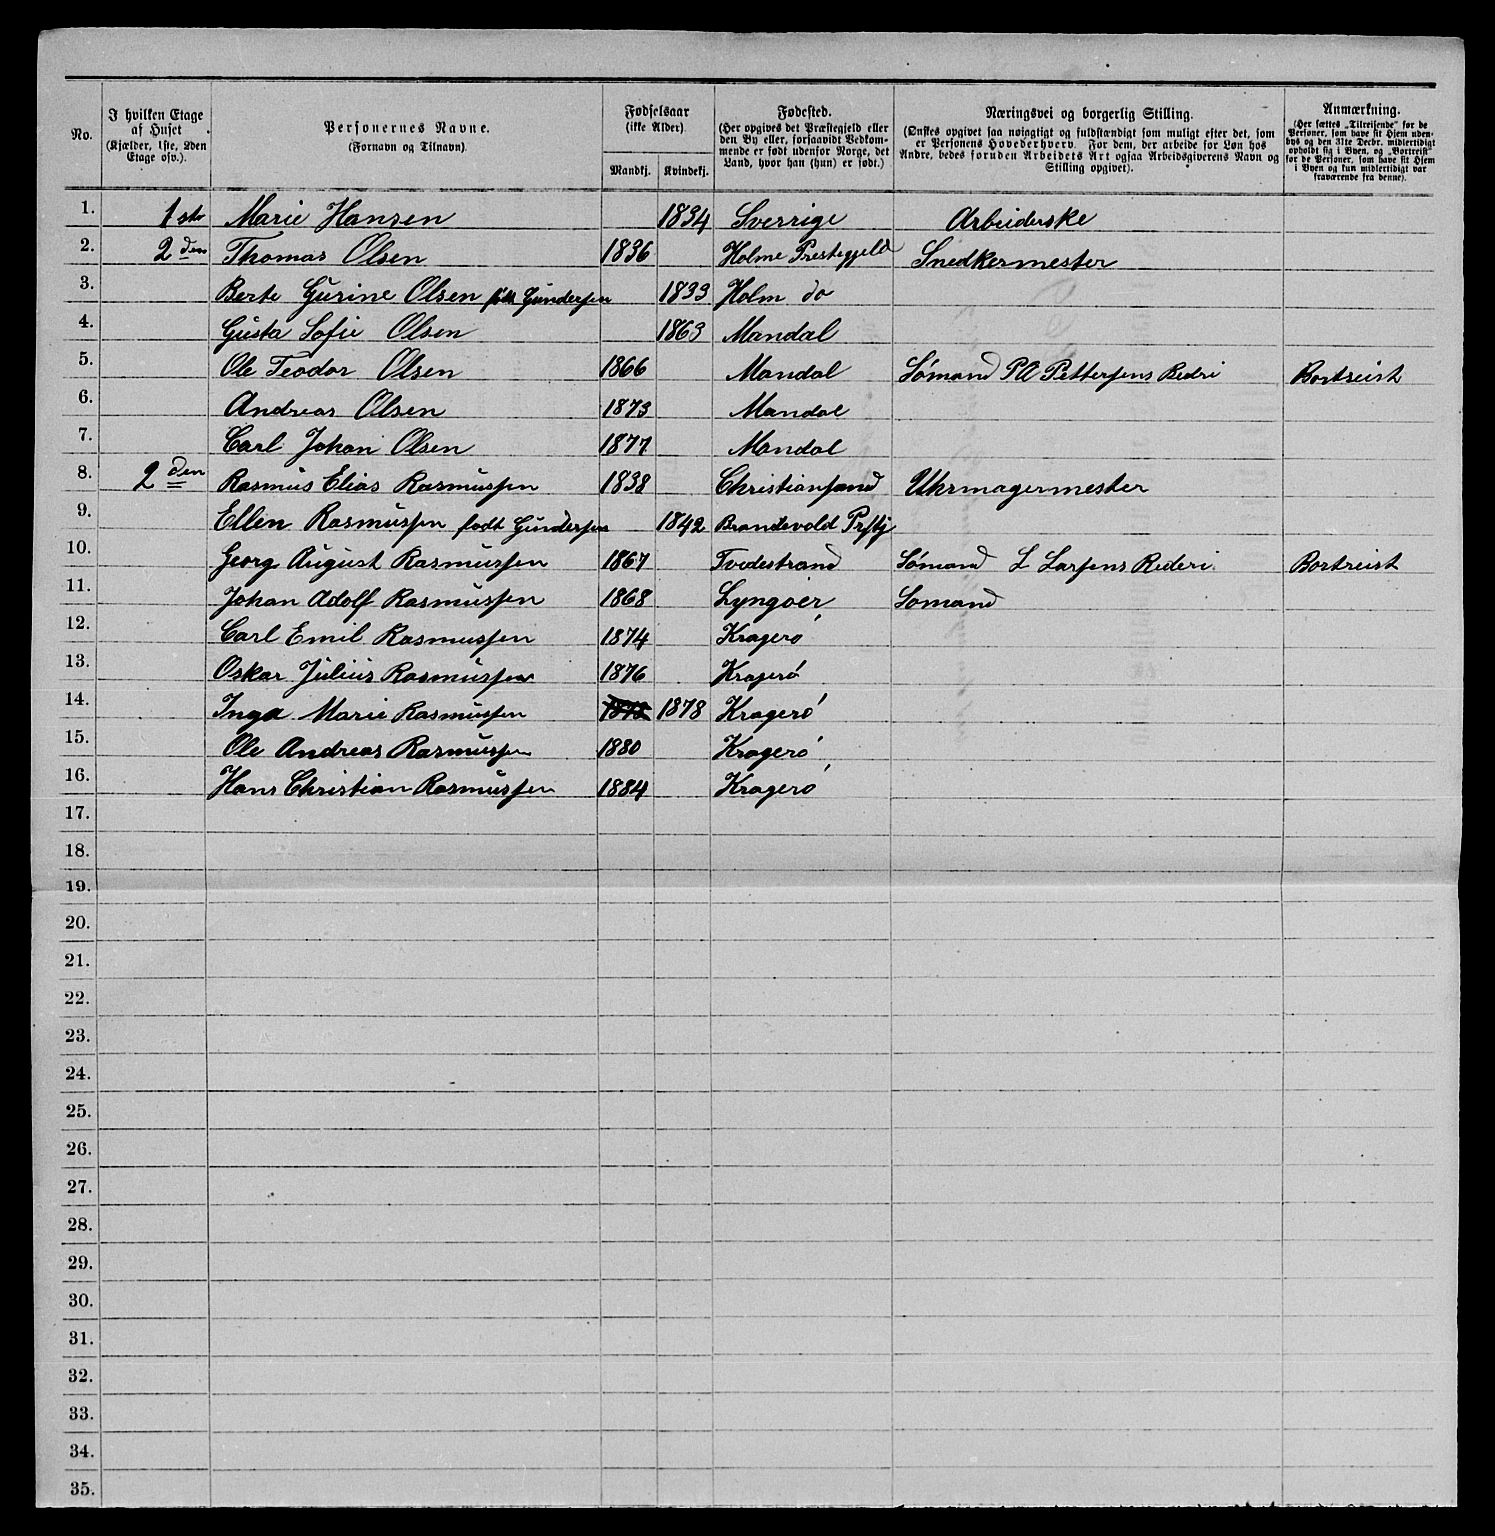 No. I hvilken Etage af Huset (Kjælder, 1ste, 2den Etage osv.). Personernes Navne. (Fornavn og Tilnavn). Fødselsaar (ikke Alder). Mandkj. Kvindekj. Fødested. (Her opgives det Præstegjeld eller den By eller, forsaavidt Vedkommende er født udenfor Norge, det Land, hvor han (hun) er født.) Næringsvei og borgerlig Stilling. (Ønskes opgivet saa nøiagtigt og fuldstændigt som muligt efter det, som er Personens Hovederhverv. For dem, der arbeide for Løn hos Andre, bedes foruden Arbeidets Art ogsaa Arbeidsgiverens Navn og Stilling opgivet). Anmærkning. (Her sættes „Tilreisende“ for de Personer, som have sit Hjem udenbys og den 31te Decbr. midlertidigt opholdt sig i Byen, og „Bortreist“ for de Personer, som have sit Hjem i Byen og kun midlertidigt var fraværende fra denne).
1. 1ste Marie Hansen 1834 Sverrige Arbeiderske
2. 2den Thomas Olsen 1836 Holme Prestegjeld Snedkermester
3. Berte Gurine Olsen født Gundersen 1833 Holm do
4. Gusta Sofie Olsen 1863 Mandal
5. Ole Teodor Olsen 1866 Mandal Sømand PA Pettersens Rederi Bortreist
6. Andreas Olsen 1873 Mandal
7. Carl Johan Olsen 1877 Mandal
8. 2den Rasmus Elias Rasmussen 1838 Christiansand Uhrmagermester
9. Ellen Rasmussen født Gundersen 1842 Brandsvold Prstgj
10. Georg August Rasmussen 1867 Tvedestrand Sømand L Larsens Rederi Bortreist
11. Johan Adolf Rasmussen 1868 Lyngøer Sømand
12. Carl Emil Rasmussen 1874 Kragerø
13. Oskar Julius Rasmussen 1876 Kragerø
14. Inga Marie Rasmussen 1878 1878 Kragerø
15. Ole Andreas Rasmussen 1880 Kragerø
16. Hans Christian Rasmussen 1884 Kragerø
17.
18.
19.
20.
21.
22.
23.
24.
25.
26.
27.
28.
29.
30.
31.
32.
33.
34.
35.